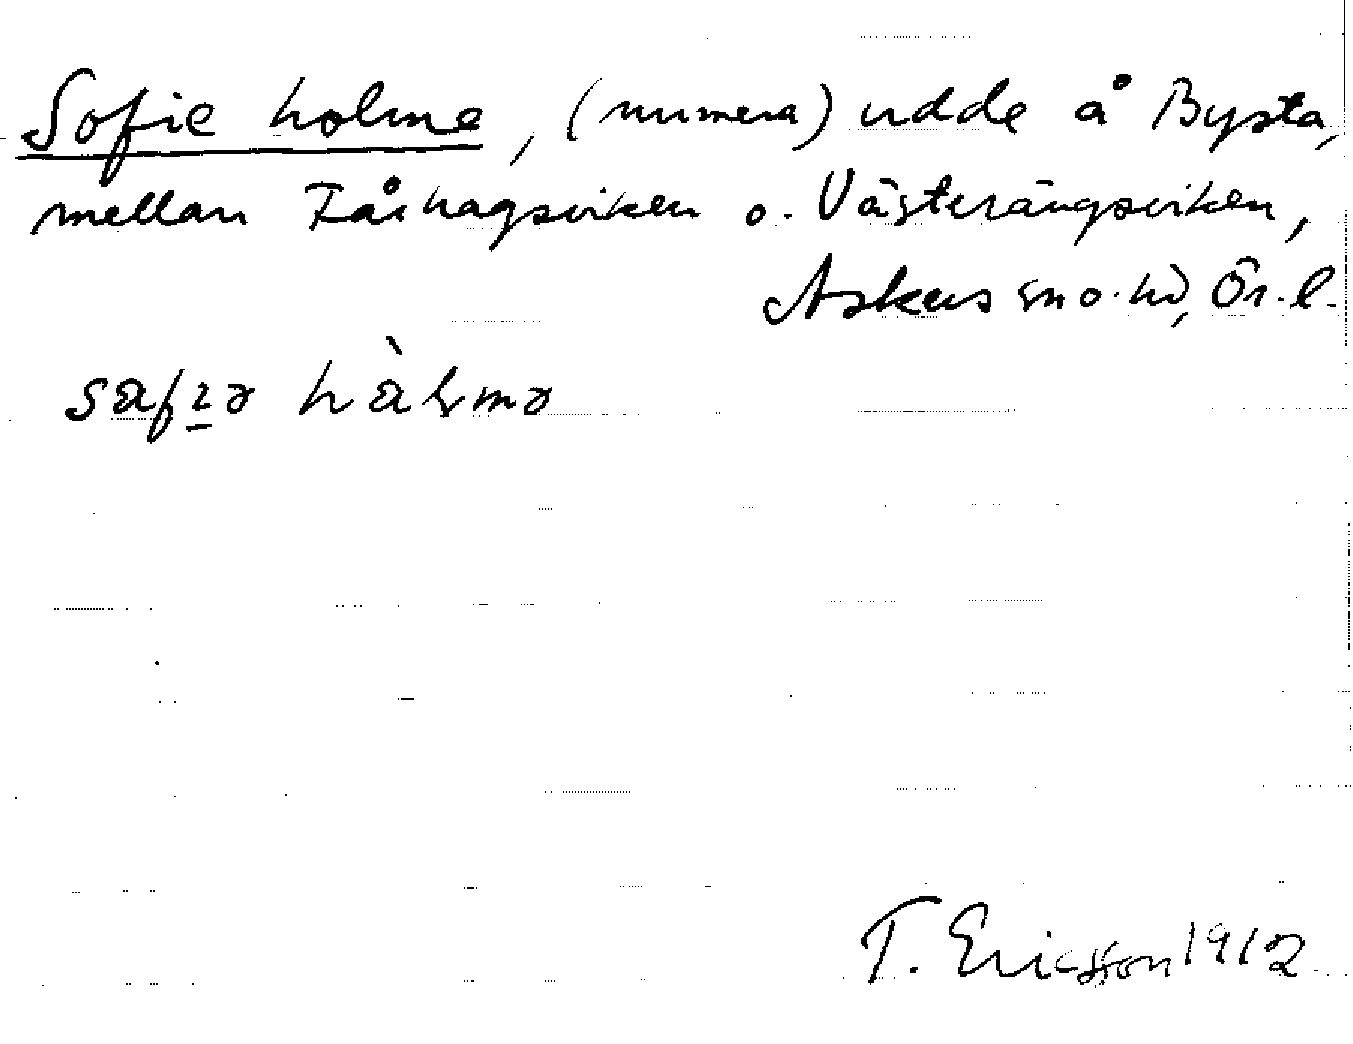 Sofie holme, (numera) udde å Bysta,
mellan Fårhagsviken o. Västerängsviken,
Askers sn o. hd, Ör. l.
T. Ericsson 1912